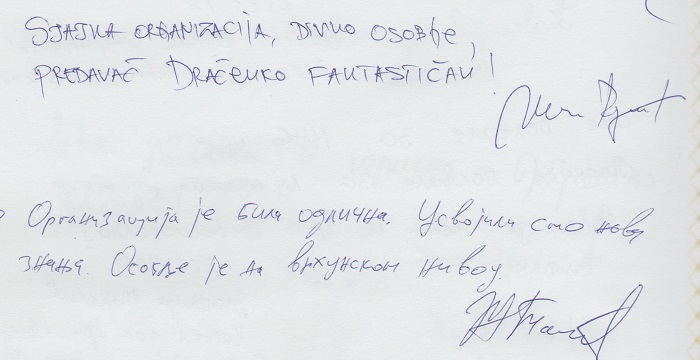 SJAJNA ORGANIZACIJA, DIVNO OSOBLJE,
PREDAVAČ DRAČENKO FANTASTIČAN!
Организација је била одлична. Усвојили смо нова
знања. Особље је на врхунском нивоу.